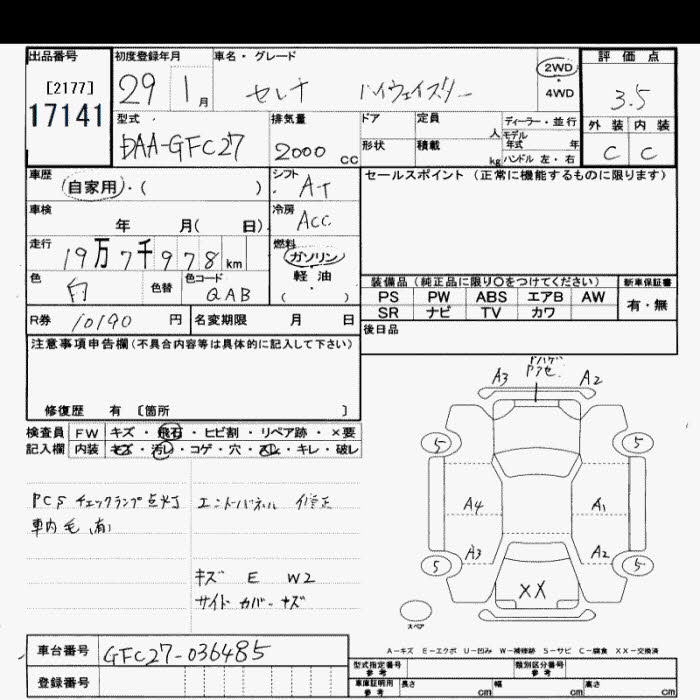 出品番号
[2177]
17141
初度登録年月
29 1月
車名・グレード
セレナ ハイウェイスター
2WD
4WD
評価点
3.5
外装 内装
C C
型式
DAA-GFC27
排気量
2000 cc
ドア
形状
定員 人
積載 kg
ディーラー・並行
モデル年式 年
ハンドル 左・右
車歴
自家用・( )
シフト
AT
車検
年 月( 日)
冷房
ACC
走行
19万7千978km
燃料
ガソリン
軽油
( )
色
白
色替
色コード
QAB
R券 10190円
名変期限 月 日
セールスポイント(正常に機能するものに限ります)
装備品(純正品に限り○をつけてください)
新車保証書
PS PW ABS エアB AW
SR ナビ TV カワ
有・無
後日品
注意事項申告欄(不具合内容等は具体的に記入して下さい)
修復歴 有 [箇所 ]
検査員記入欄
FW キズ・飛石・ヒビ割・リペア跡・×要
内装 キズ・汚レ・コゲ・穴・スレ・キレ・破レ
PCSチェックランプ点灯
車内毛(有)
エンドパネル 修正
キズ E W2
サイドカバーキズ
A3 A2
5 5
A4 A1
A3 A2
5 5
XX
スペア
A-キズ E-エクボ U-凹み W-補修跡 S-サビ C-腐食 XX-交換済
車台番号 GFC27-036485
登録番号
型式指定番号
参考
類別区分番号
参考
車庫証明用
参考
長さ cm 幅 cm 高さ cm